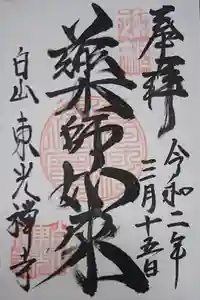 奉拝
令和二年
三月十五日
藥師如來
白山 東光禅寺